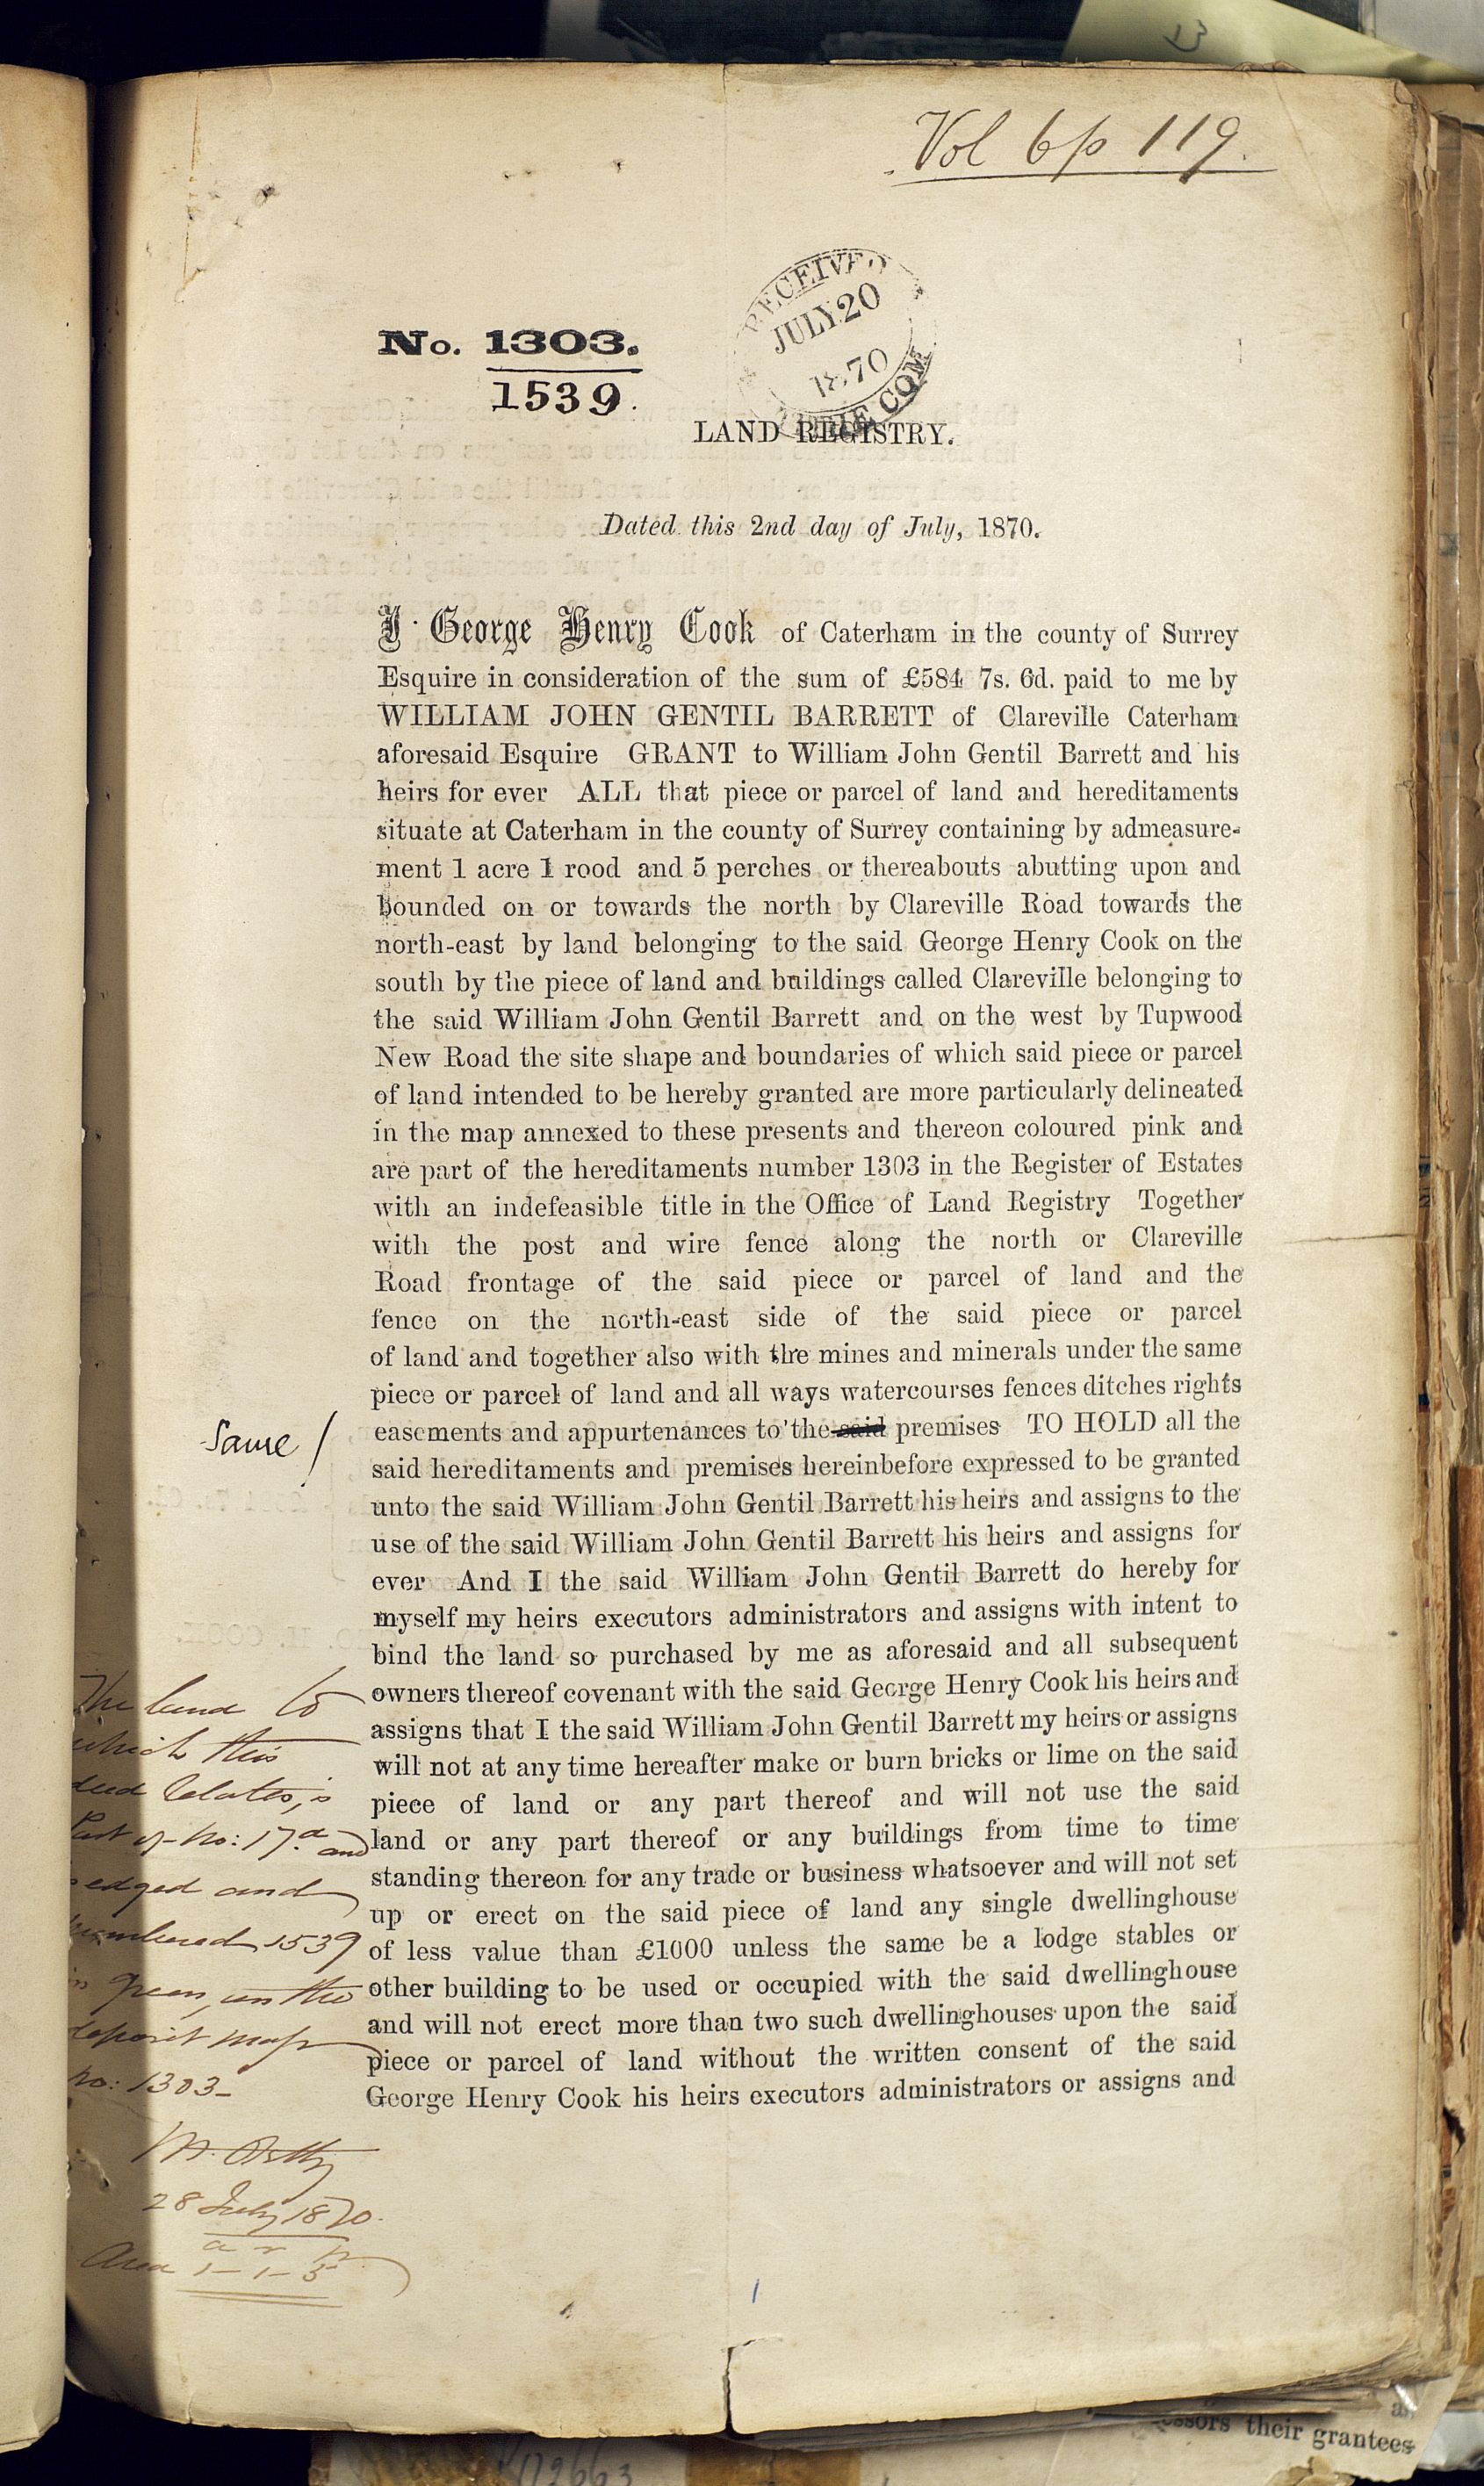 Vol 6 p 119.
RECEIVED
JULY 20
1870
No. 1303.
1539.
LAND REGISTRY.
Dated this 2nd day of July, 1870.
I George Henry Cook of Caterham in the county of Surrey
Esquire in consideration of the sum of £584 7s. 6d. paid to me by
WILLIAM JOHN GENTIL BARRETT of Clareville Caterham
aforesaid Esquire GRANT to William John Gentil Barrett and his
heirs for ever ALL that piece or parcel of land and hereditaments
situate at Caterham in the county of Surrey containing by admeasure-
ment 1 acre 1 rood and 5 perches or thereabouts abutting upon and
bounded on or towards the north by Clareville Road towards the
north-east by land belonging to the said George Henry Cook on the
south by the piece of land and buildings called Clareville belonging to
the said William John Gentil Barrett and on the west by Tupwood
New Road the site shape and boundaries of which said piece or parcel
of land intended to be hereby granted are more particularly delineated
in the map annexed to these presents and thereon coloured pink and
are part of the hereditaments number 1303 in the Register of Estates
with an indefeasible title in the Office of Land Registry Together
with the post and wire fence along the north or Clareville
Road frontage of the said piece or parcel of land and the
fence on the north-east side of the said piece or parcel
of land and together also with the mines and minerals under the same
piece or parcel of land and all ways watercourses fences ditches rights
same /
easements and appurtenances to the said premises TO HOLD all the
said hereditaments and premises hereinbefore expressed to be granted
unto the said William John Gentil Barrett his heirs and assigns to the
use of the said William John Gentil Barrett his heirs and assigns for
ever And I the said William John Gentil Barrett do hereby for
myself my heirs executors administrators and assigns with intent to
bind the land so purchased by me as aforesaid and all subsequent
owners thereof covenant with the said George Henry Cook his heirs and
assigns that I the said William John Gentil Barrett my heirs or assigns
will not at any time hereafter make or burn bricks or lime on the said
piece of land or any part thereof and will not use the said
land or any part thereof or any buildings from time to time
standing thereon for any trade or business whatsoever and will not set
up or erect on the said piece of land any single dwellinghouse
of less value than £1000 unless the same be a lodge stables or
other building to be used or occupied with the said dwellinghouse
and will not erect more than two such dwellinghouses upon the said
piece or parcel of land without the written consent of the said
George Henry Cook his heirs executors administrators or assigns and
The land to
which this
deed relates, is
Part of No: 17a. and
edged and
numbered 1539
in green, on the
deposit map
No: 1303-
28 July 1870.
a r p
Area 1-1-5
1
their grantees